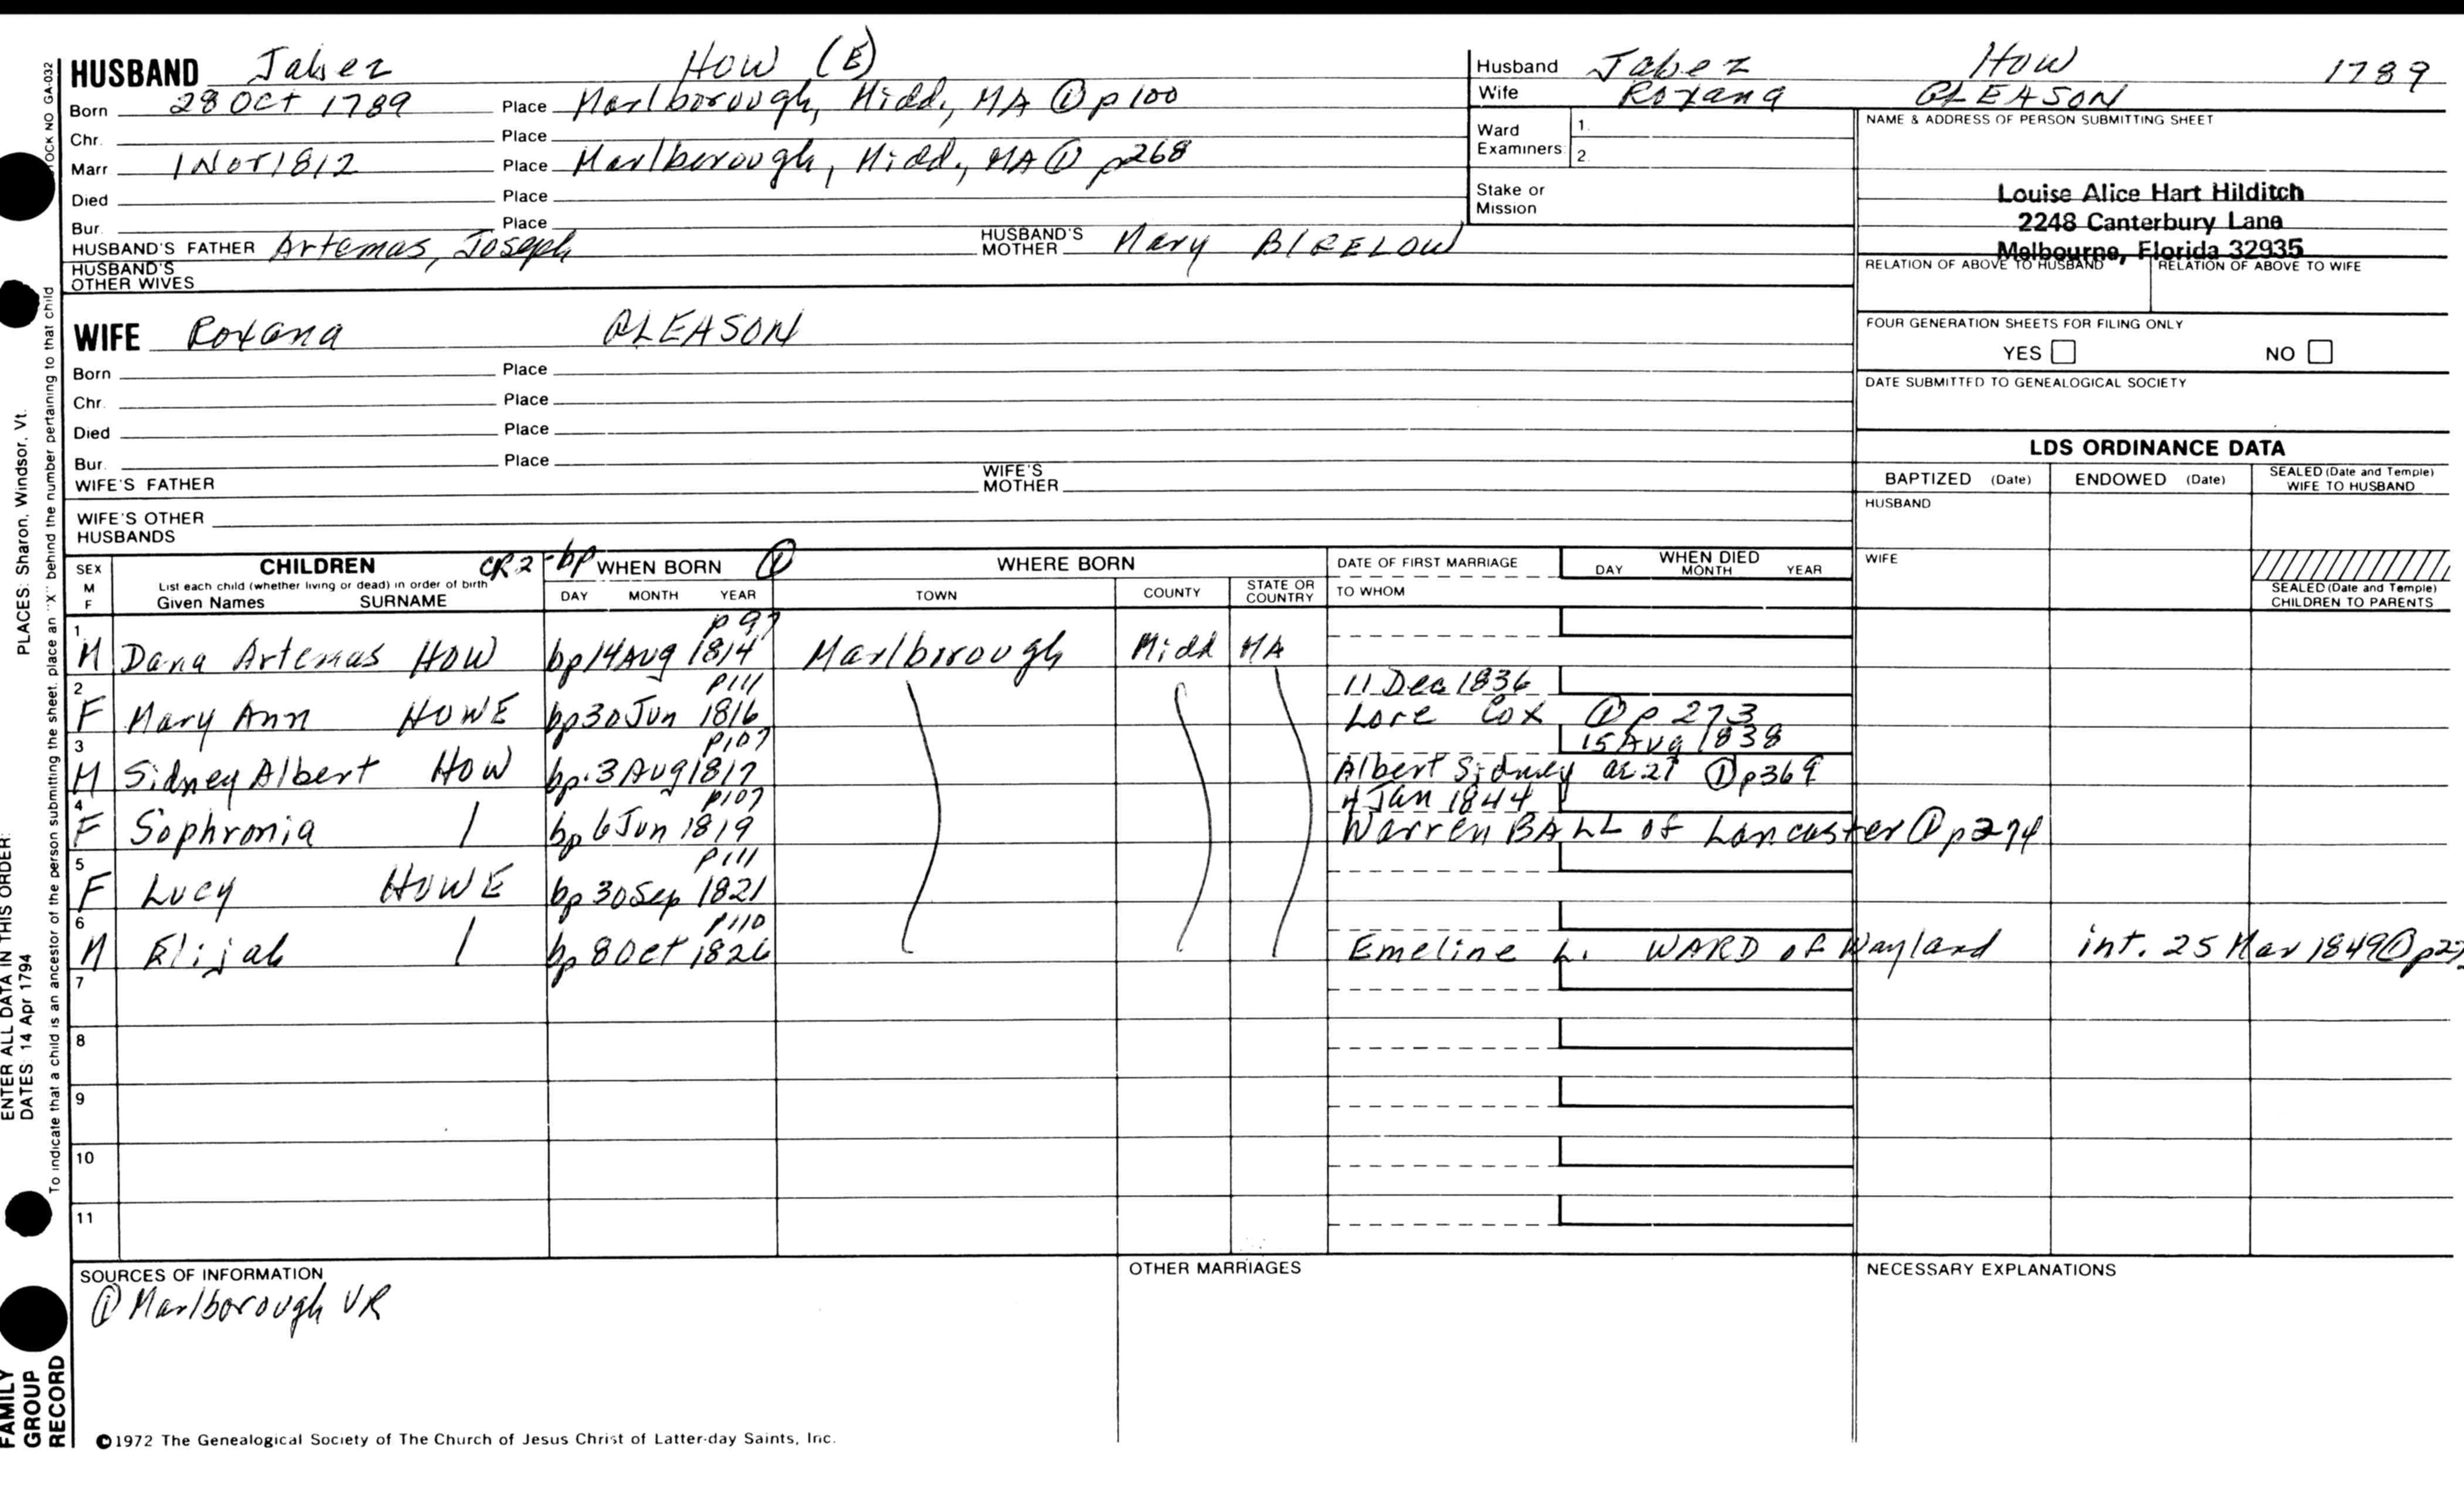 HUSBAND Jabez HOW (E)
Born 28 Oct 1789 Place Marlborough, Midd, MA ① p100
Chr. Place
Marr 1 Nov 1812 Place Marlborough, Midd, MA ① p268
Died Place
Bur. Place
HUSBAND'S FATHER Artemas, Joseph HUSBAND'S MOTHER Mary BIGELOW
HUSBAND'S OTHER WIVES
Husband Jabez How 1789
Wife Roxana GLEASON
Ward Examiners 1.
2.
Stake or Mission
NAME & ADDRESS OF PERSON SUBMITTING SHEET
Louise Alice Hart Hilditch
2248 Canterbury Lane
Melbourne, Florida 32935
RELATION OF ABOVE TO HUSBAND RELATION OF ABOVE TO WIFE
FOUR GENERATION SHEETS FOR FILING ONLY
YES NO
DATE SUBMITTED TO GENEALOGICAL SOCIETY
WIFE Roxana GLEASON
Born Place
Chr. Place
Died Place
Bur. Place
WIFE'S FATHER WIFE'S MOTHER
WIFE'S OTHER HUSBANDS
LDS ORDINANCE DATA
BAPTIZED (Date) ENDOWED (Date) SEALED (Date and Temple) WIFE TO HUSBAND
HUSBAND
WIFE
SEALED (Date and Temple) CHILDREN TO PARENTS
SEX M F CHILDREN CR2-bp WHEN BORN ① WHERE BORN DATE OF FIRST MARRIAGE WHEN DIED
List each child (whether living or dead) in order of birth
Given Names SURNAME DAY MONTH YEAR TOWN COUNTY STATE OR COUNTRY TO WHOM DAY MONTH YEAR
1 p97
M Dana Artemas HOW bp 14 Aug 1814 Marlborough Midd MA
2 p111 11 Dec 1836
F Mary Ann HOWE bp 30 Jun 1816 Lore Cox ① p 273
3 p107 15 Aug 1838
M Sidney Albert HOW bp. 3 Aug 1817 Albert Sidney ae 21 ① p369
4 p107 4 Jan 1844
F Sophronia / bp 6 Jun 1819 Warren BALL of Lancaster ① p274
5 p111
F Lucy HOWE bp 30 Sep 1821
6 p110
M Elijah / bp 8 Oct 1826 Emeline L. WARD of Wayland int. 25 Mar 1849 ①
7
8
9
10
11
SOURCES OF INFORMATION OTHER MARRIAGES NECESSARY EXPLANATIONS
① Marlborough VR
©1972 The Genealogical Society of The Church of Jesus Christ of Latter-day Saints, Inc.
FAMILY GROUP RECORD
ENTER ALL DATA IN THIS ORDER:
DATES: 14 Apr 1794 PLACES: Sharon, Windsor, Vt.
To indicate that a child is an ancestor of the person submitting the sheet, place an "X" behind the number pertaining to that child
OCK NO GA-032